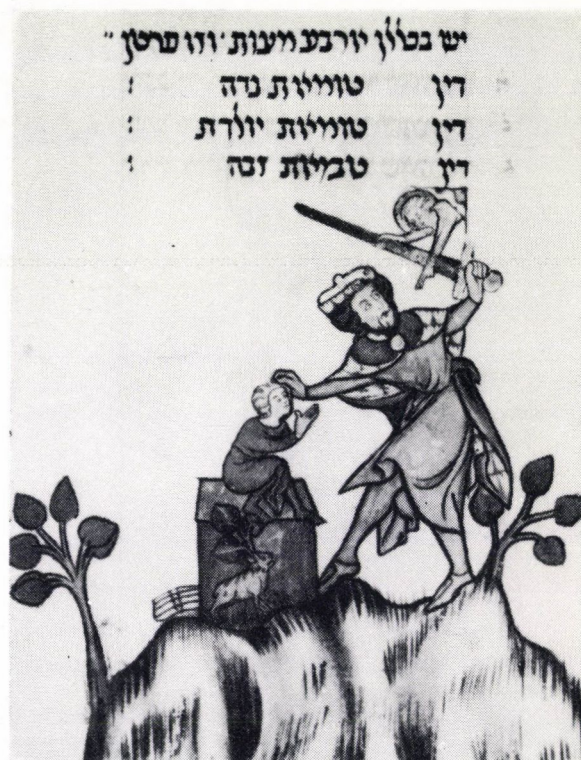 יש בכללן ארבע מצות וזו פרטן
דין טומאת נדה :
דין טומאת יולדת :
דין טומאת זבה :